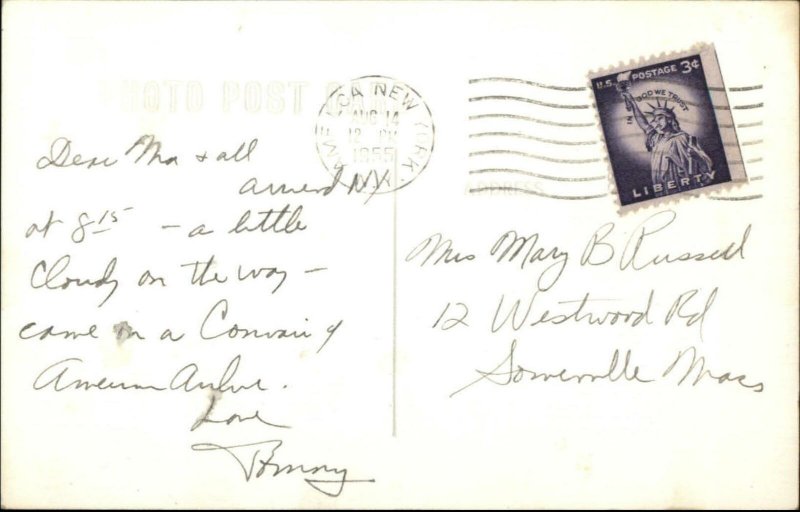 PHOTO POST CARD
AMERICA NEW YORK.
AUG 14
12 PM
1955
U.S. POSTAGE 3¢
IN GOD WE TRUST
LIBERTY
ADDRESS
Dear Ma & all
arrived NY
at 8 15 - a little
Cloudy on the way -
came in a Convair of
American Airline.
Love
Tommy
Mrs Mary B Russell
12 Westwood Rd
Somerville Mass